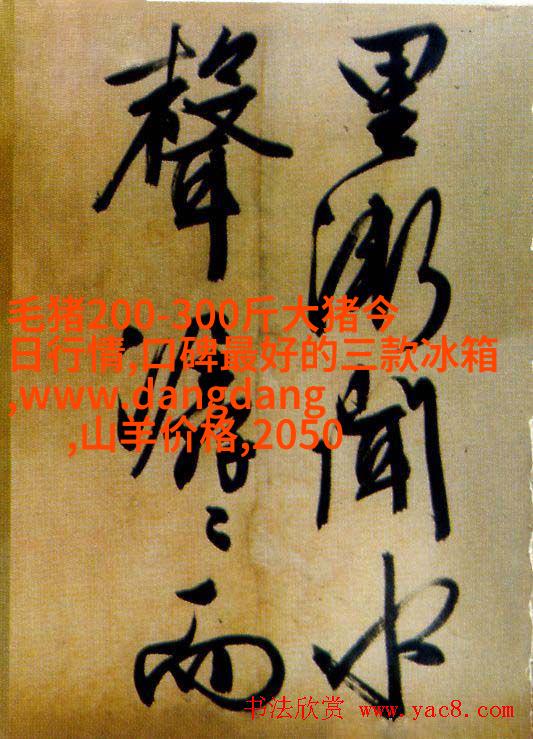 里渐闻水
聲潺〻而
毛猪200-300斤大猪今
日行情,口碑最好的三款冰箱
,www.dangdang
,山羊价格,2050
书法欣赏 www.yac8.com